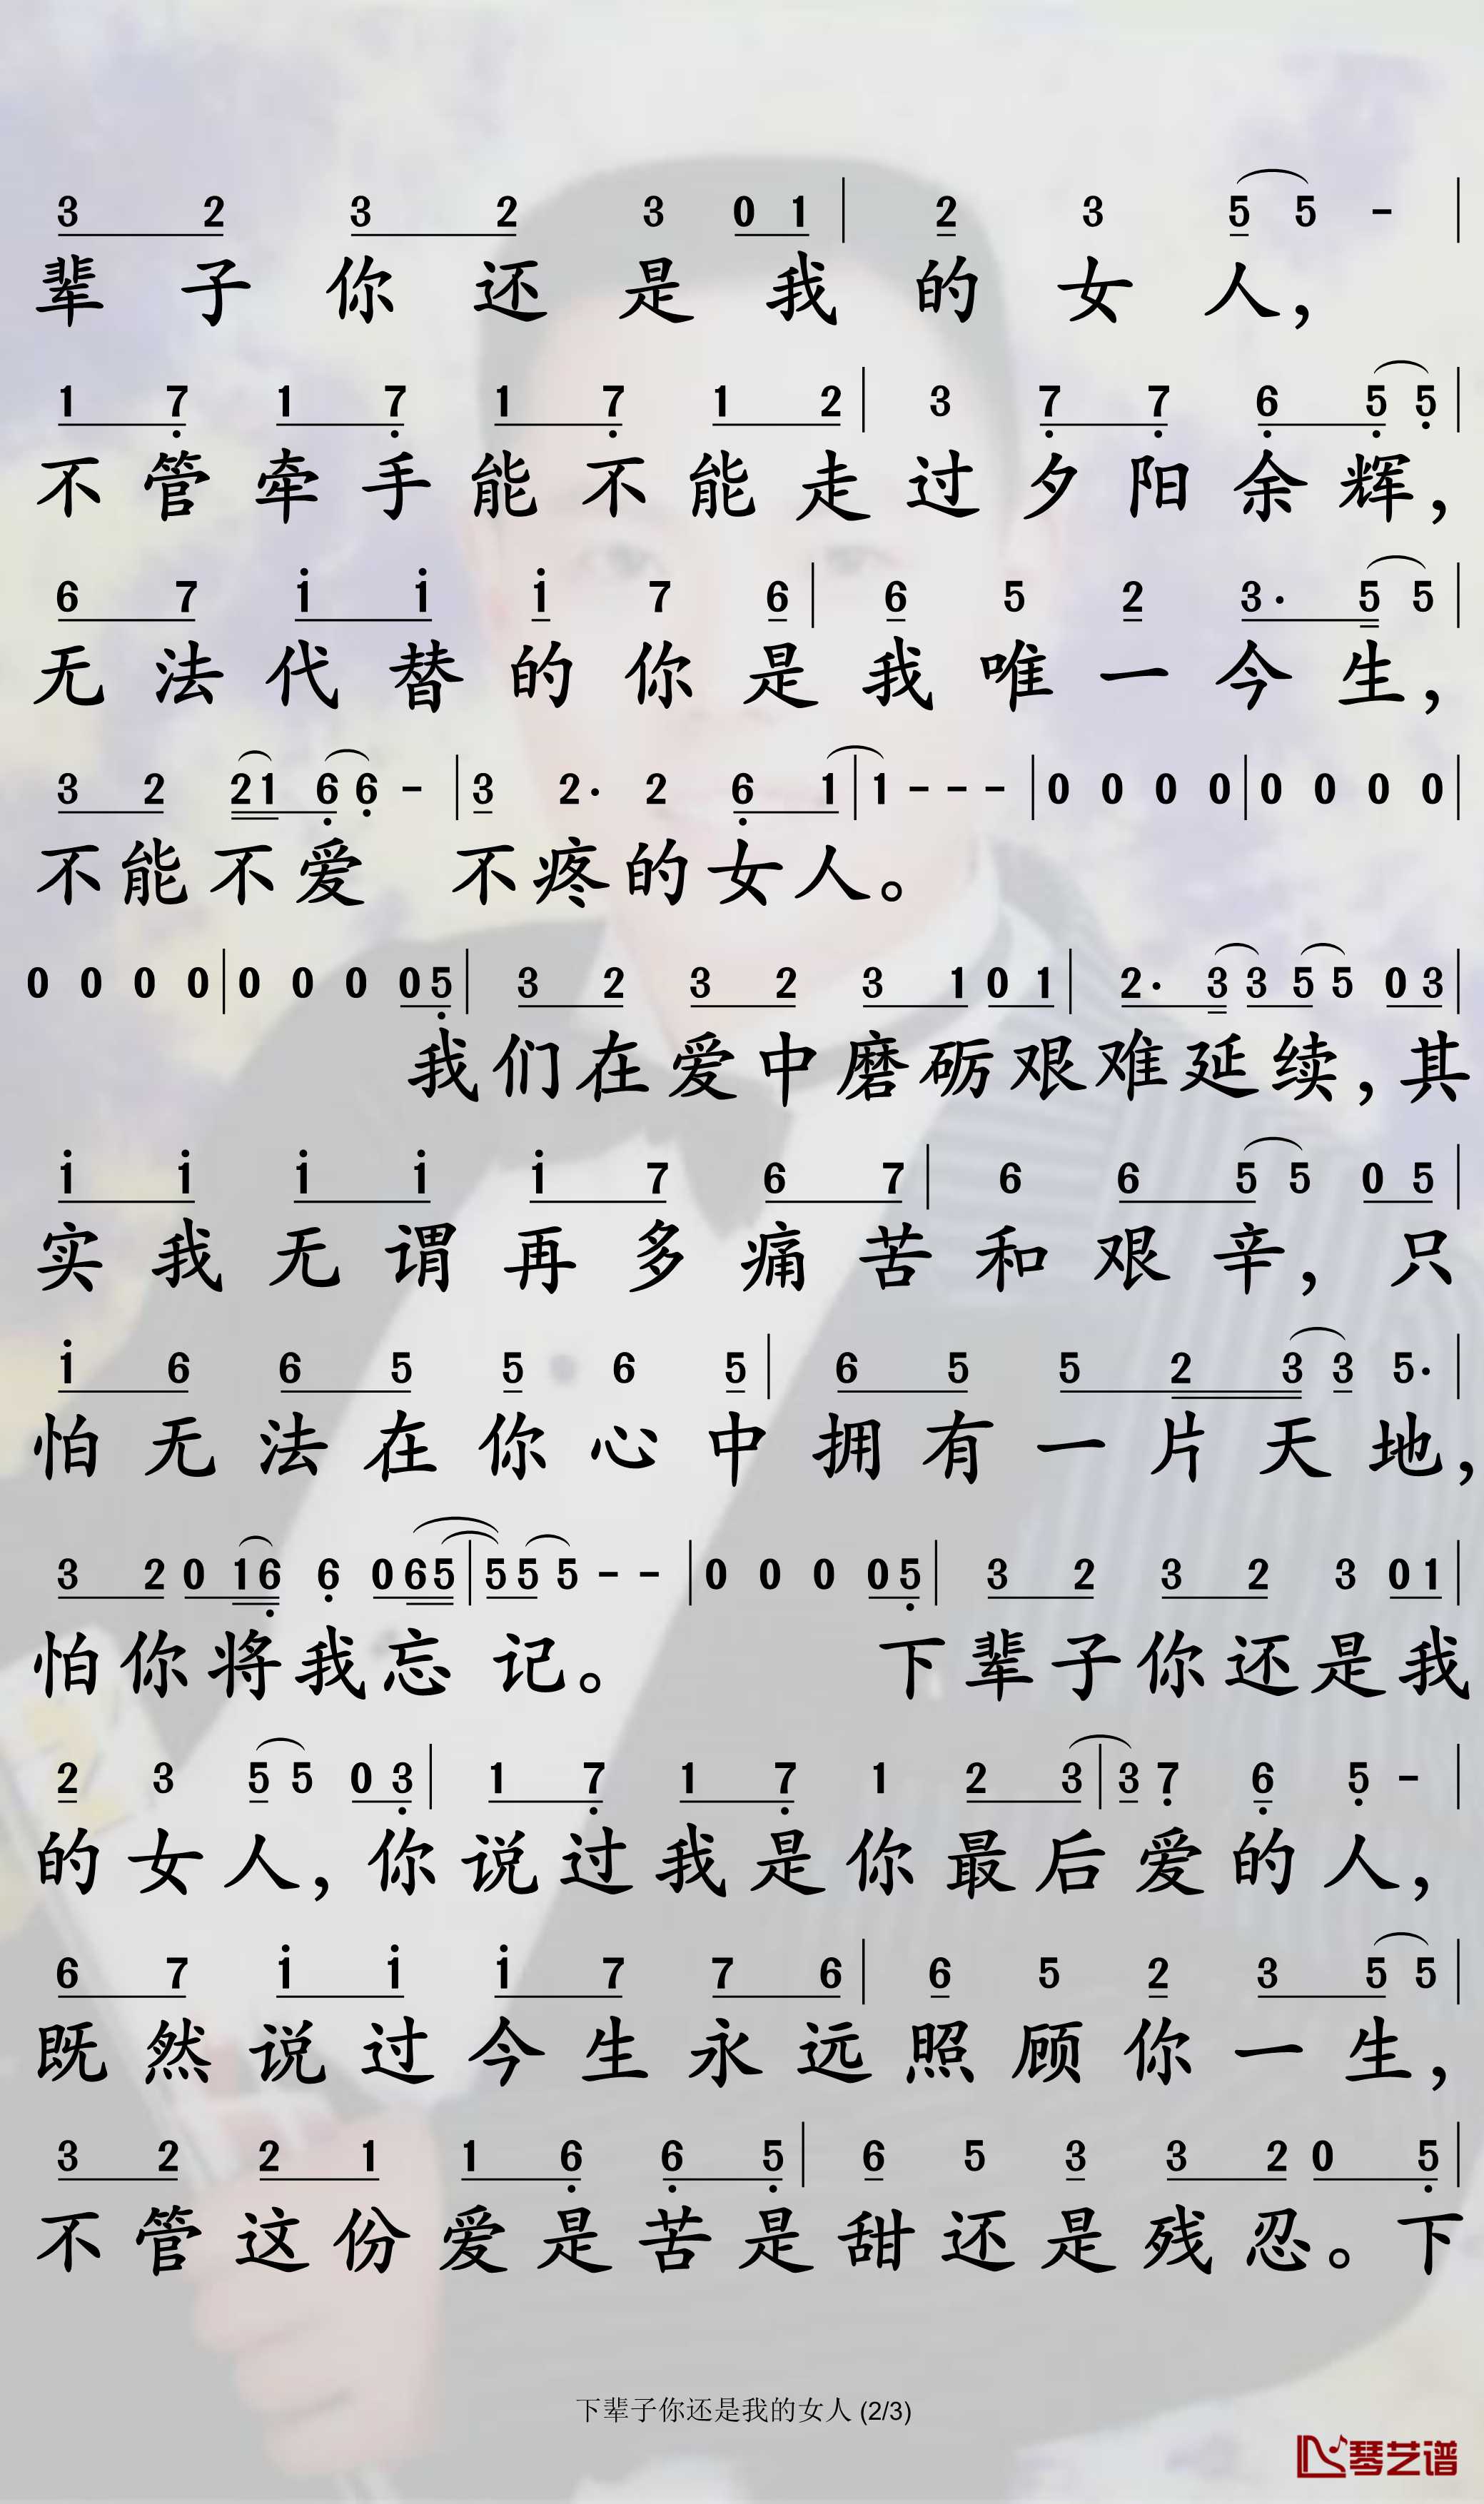 3 2 3 2 3 0 1 | 2 3 5 5 - |
辈子你还是我的女人，
1 7 1 7 1 7 1 2 | 3 7 7 6 5 5 |
不管牵手能不能走过夕阳余辉，
6 7 i i i 7 6 | 6 5 2 3· 5 5 |
无法代替的你是我唯一今生，
3 2 2 1 6 6 - | 3 2· 2 6 1 | 1 - - - | 0 0 0 0 | 0 0 0 0 |
不能不爱 不疼的女人。
0 0 0 0 | 0 0 0 0 5 | 3 2 3 2 3 1 0 1 | 2· 3 3 5 5 0 3 |
我们在爱中磨砺艰难延续，其
i i i i i 7 6 7 | 6 6 5 5 0 5 |
实我无谓再多痛苦和艰辛，只
i 6 6 5 5 6 5 | 6 5 5 2 3 3 5· |
怕无法在你心中拥有一片天地，
3 2 0 1 6 6 0 6 5 | 5 5 5 - - | 0 0 0 0 5 | 3 2 3 2 3 0 1 |
怕你将我忘 记。 下辈子你还是我
2 3 5 5 0 3 | 1 7 1 7 1 2 3 | 3 7 6 5 - |
的女人，你说过我是你最后爱的人，
6 7 i i i 7 7 6 | 6 5 2 3 5 5 |
既然说过今生永远照顾你一生，
3 2 2 1 1 6 6 5 | 6 5 3 3 2 0 5 |
不管这份爱是苦是甜还是残忍。下
下辈子你还是我的女人 (2/3)
琴艺谱